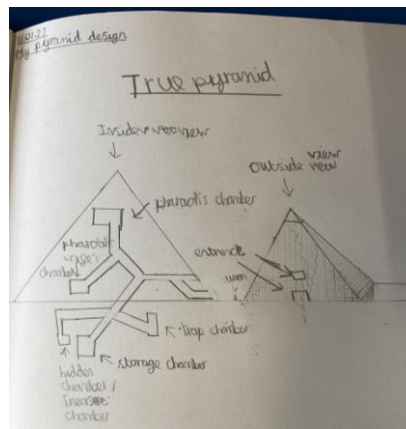 My pyramid design
True pyramid
Inside
view
outside
view
pharaoh's chamber
pharaoh
chamber
entrance
trap chamber
storage chamber
hidden
chamber /
Treasure
chamber